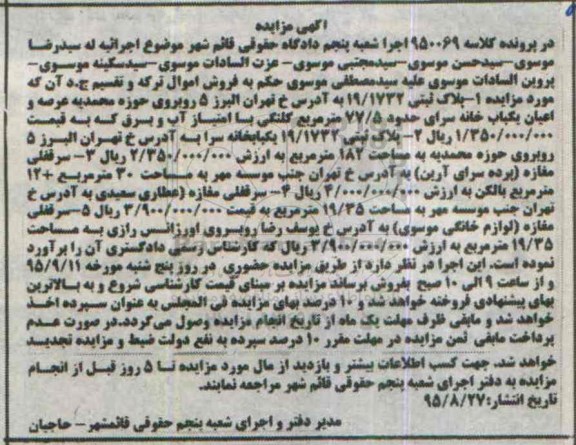 اگهی مزایده
در پرونده کلاسه ۹۵۰۰۶۹ اجرا شعبه پنجم دادگاه حقوقی قائم شهر موضوع اجرائیه له سیدرضا
موسوی-سیدحسن موسوی-سیدمجتبی موسوی- عزت السادات موسوی-سیدسکینه موسوی-
پروین السادات موسوی علیه سیدمصطفی موسوی حکم به فروش اموال ترکه و تقسیم ج.د آن که
مورد مزایده ۱-پلاک ثبتی ۱۹/۱۷۳۲ به آدرس خ تهران البرز ۵ روبروی حوزه محمدیه عرصه و
اعیان یکباب خانه سرای حدود ۷۷/۵ مترمربع کلنگی با امتیاز آب و برق که به قیمت
۱/۳۵۰/۰۰۰/۰۰۰ ریال ۲- پلاک ثبتی ۱۹/۱۷۳۲ یکبابخانه سرا به آدرس خ تهران البرز ۵
روبروی حوزه محمدیه به مساحت ۱۸۲ مترمربع به ارزش ۲/۳۵۰/۰۰۰/۰۰۰ ریال ۳- سرقفلی
مغازه (پرده سرای آرین) به آدرس خ تهران جنب موسسه مهر به مساحت ۳۰ مترمربع +۱۲
مترمربع بالکن به ارزش ۴/۰۰۰/۰۰۰/۰۰۰ ریال ۴- سرقفلی مغازه (عطاری سعیدی به آدرس خ
تهران جنب موسسه مهر به مساحت ۱۹/۳۵ مترمربع به قیمت ۳/۹۰۰/۰۰۰/۰۰۰ ریال ۵-سرقفلی
مغازه (لوازم خانگی موسوی) به آدرس خ یوسف رضا روبروی اورژانس رازی به مساحت
۱۹/۳۵ مترمربع به ارزش ۳/۹۰۰/۰۰۰/۰۰۰ ریال که کارشناس رسمی دادگستری آن را برآورد
نموده است. این اجرا در نظر دارد از طریق مزایده حضوری در روز پنج شنبه مورخه ۹۵/۹/۱۱
و از ساعت ۹ الی ۱۰ صبح بفروش برساند مزایده بر مبنای قیمت کارشناسی شروع و به بالاترین
بهای پیشنهادی فروخته خواهد شد و ۱۰ درصد بهای مزایده فی المجلس به عنوان سپرده اخذ
خواهد شد و مابقی ظرف مهلت یک ماه از تاریخ انجام مزایده وصول می گردد.در صورت عدم
پرداخت مابقی ثمن مزایده در مهلت مقرر ۱۰ درصد سپرده به نفع دولت ضبط و مزایده تجدید
خواهد شد. جهت کسب اطلاعات بیشتر و بازدید از مال مورد مزایده تا ۵ روز قبل از انجام
مزایده به دفتر اجرای شعبه پنجم حقوقی قائم شهر مراجعه نمایند.
تاریخ انتشار:۹۵/۸/۲۷
مدیر دفتر و اجرای شعبه پنجم حقوقی قائمشهر- حاجیان